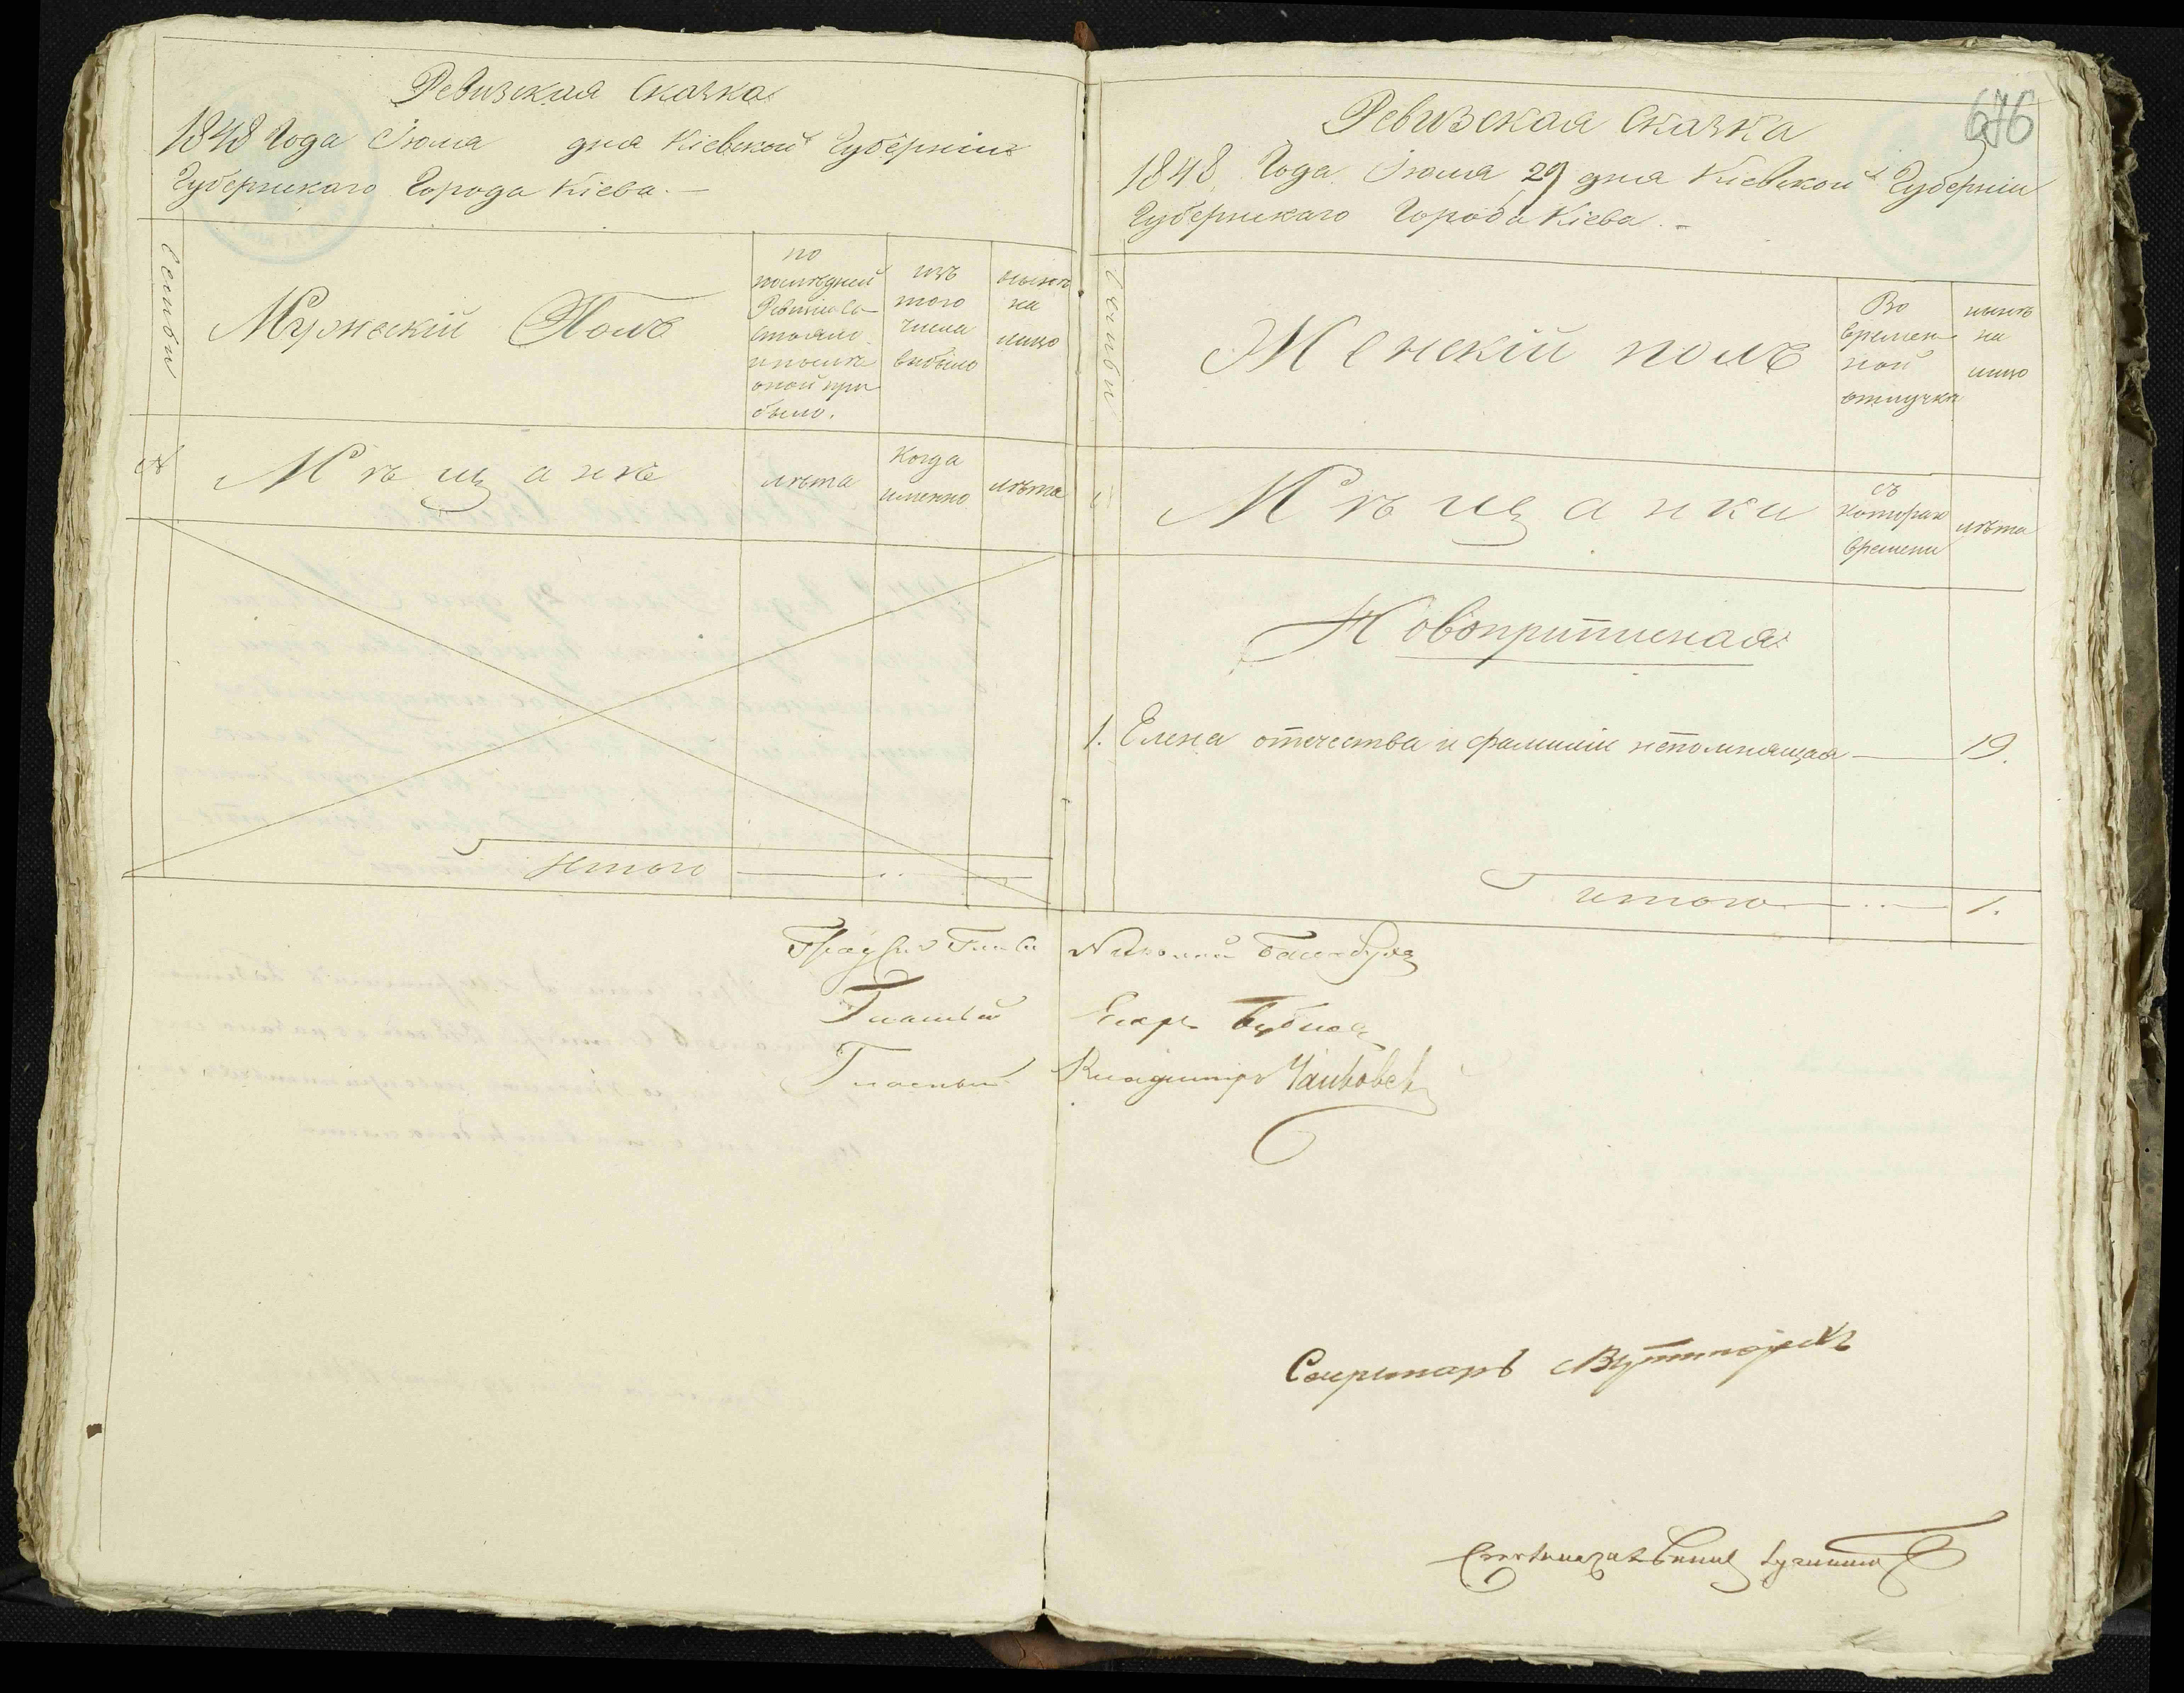 Ревизская Сказка
1848 Года Іюля дня Кіевской Губерніи
Губернскаго Города Кіева. —
Семьи
Мужескій Полъ
по
последней
Ревизіи со-
стояло
и после
оной при
было.
изъ
того
числа
выбыло
ныне
на
лицо
№
Мѣщане
лѣта
Когда
именно
лѣта
Итого
676
Ревизская Сказка
1848 Года Іюля 29 дня Кіевской Губерніи
Губернскаго Города Кіева. -
Семьи
Женскій полъ
Во
времен
ной
отлучке
ныне
на
лицо
Мѣщанки
съ
котораго
времени
лѣта
Новоприписная
1. Елена отечества и фамиліи непомнящая — 19.
итого 1.
Градской Глава Николай
Гласный Бубнов
Гласный Владимиръ Чайковскій
Секретарь